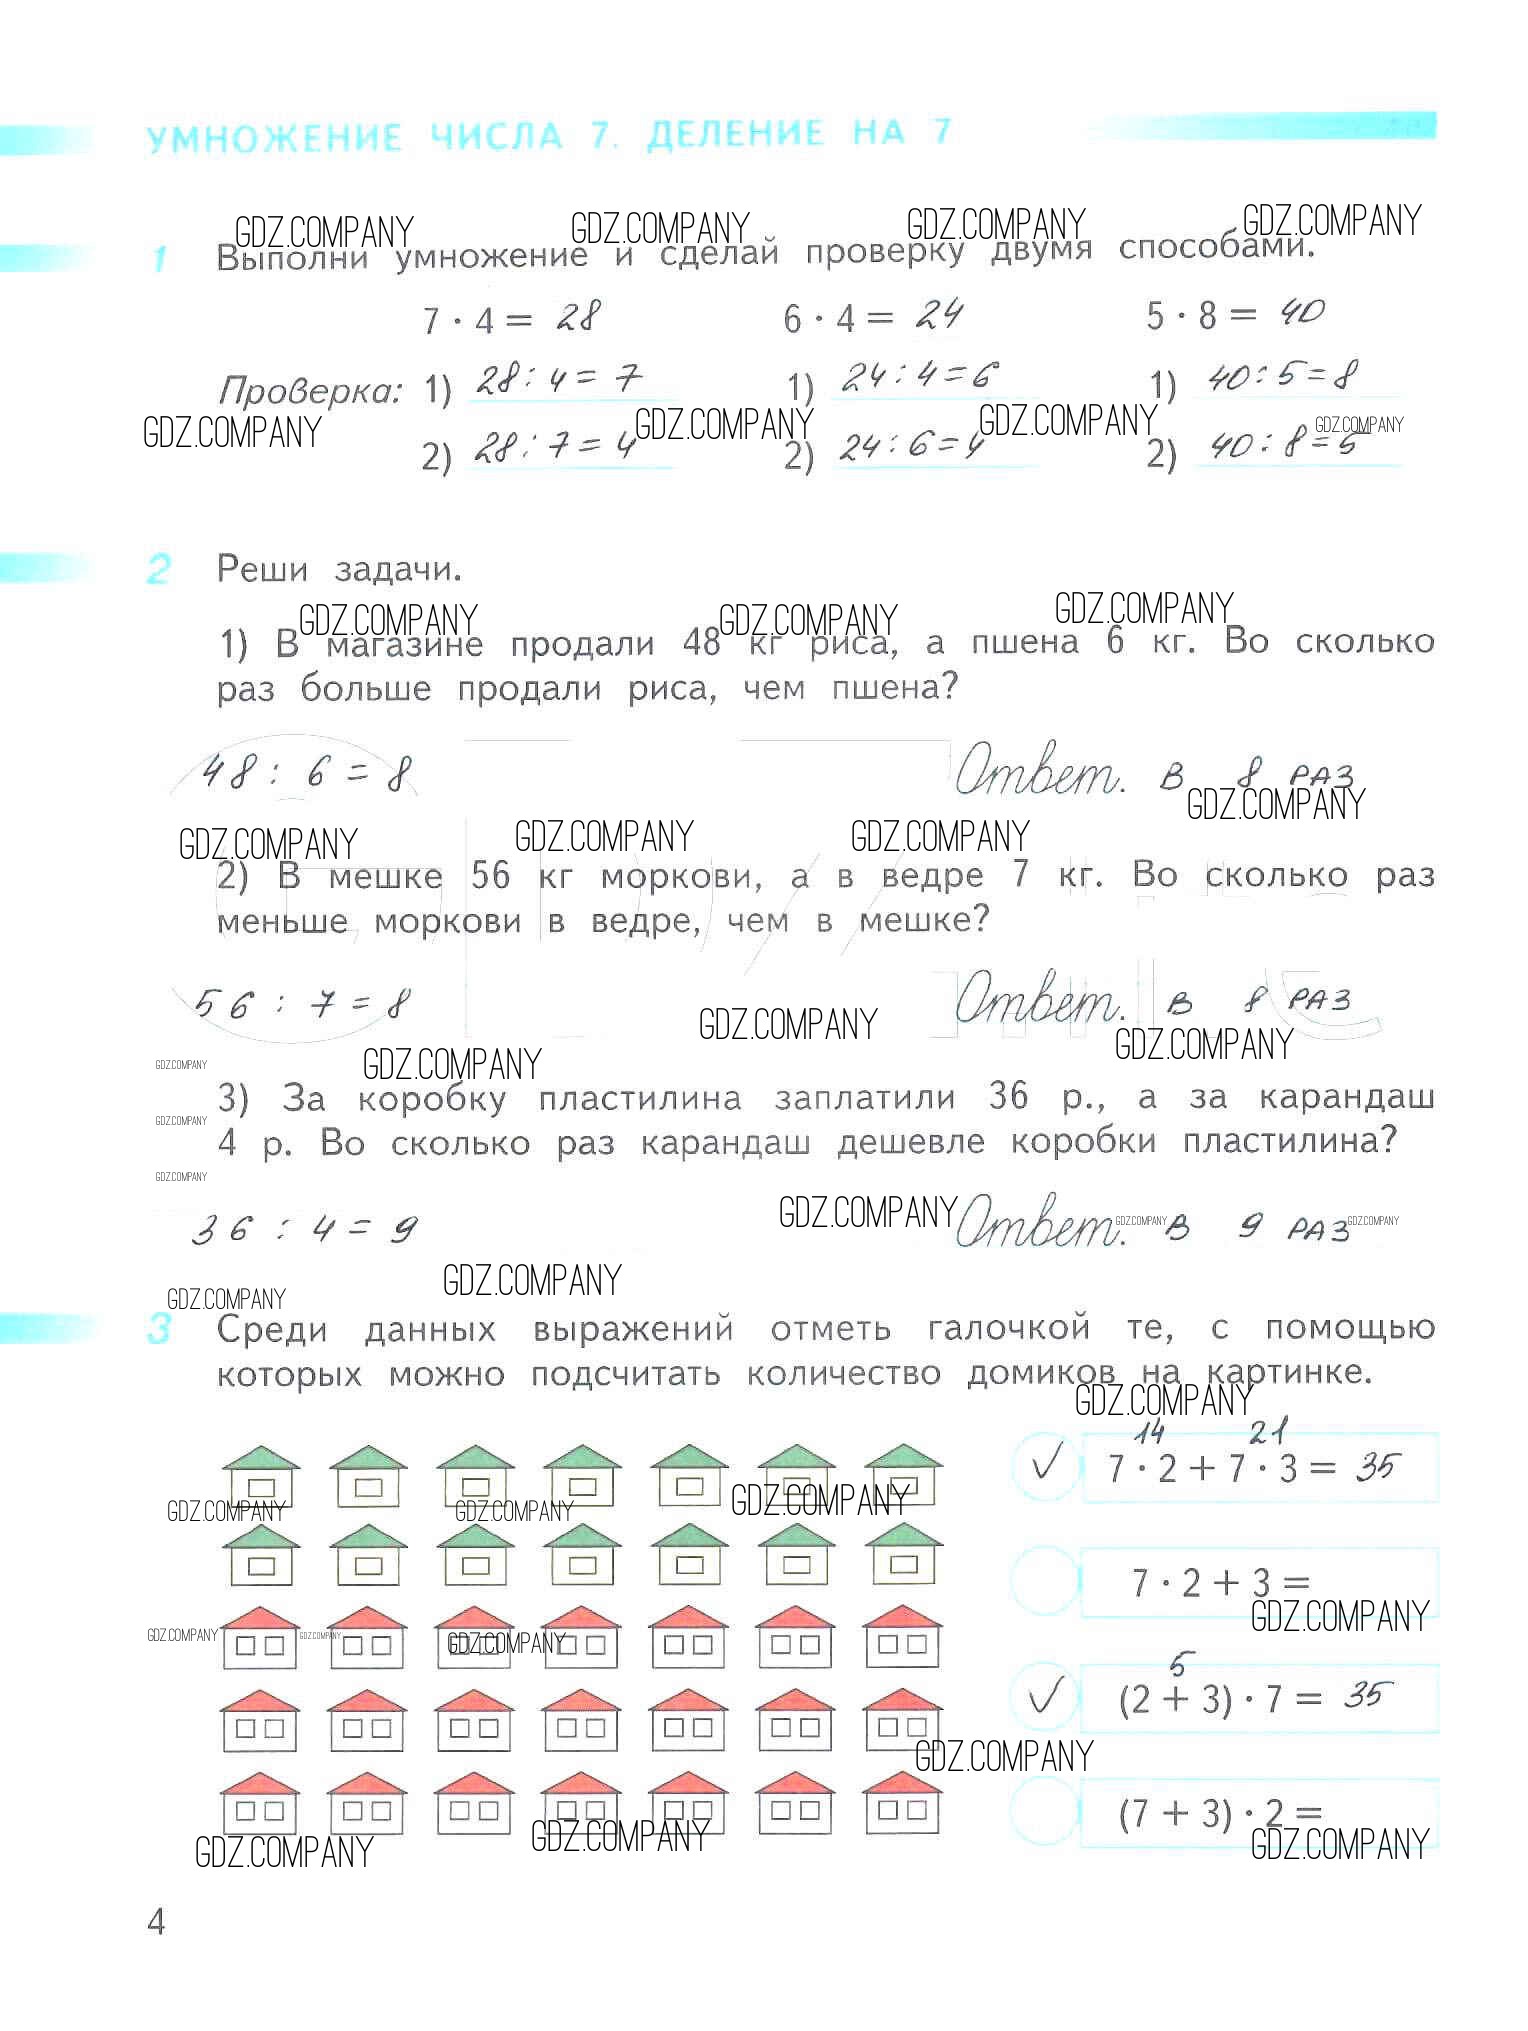 УМНОЖЕНИЕ ЧИСЛА 7. ДЕЛЕНИЕ НА 7
GDZ.COMPANY GDZ.COMPANY GDZ.COMPANY GDZ.COMPANY
1 Выполни умножение и сделай проверку двумя способами.
7 · 4 = 28 6 · 4 = 24 5 · 8 = 40
Проверка: 1) 28 : 4 = 7 1) 24 : 4 = 6 1) 40 : 5 = 8
GDZ.COMPANY GDZ.COMPANY GDZ.COMPANY GDZ.COMPANY
2) 28 : 7 = 4 2) 24 : 6 = 4 2) 40 : 8 = 5
2 Реши задачи.
GDZ.COMPANY GDZ.COMPANY GDZ.COMPANY
1) В магазине продали 48 кг риса, а пшена 6 кг. Во сколько
раз больше продали риса, чем пшена?
48 : 6 = 8 Ответ. в 8 раз
GDZ.COMPANY
GDZ.COMPANY GDZ.COMPANY GDZ.COMPANY
2) В мешке 56 кг моркови, а в ведре 7 кг. Во сколько раз
меньше моркови в ведре, чем в мешке?
56 : 7 = 8 Ответ. в 8 раз
GDZ.COMPANY GDZ.COMPANY
GDZ.COMPANY GDZ.COMPANY
3) За коробку пластилина заплатили 36 р., а за карандаш
GDZ.COMPANY
4 р. Во сколько раз карандаш дешевле коробки пластилина?
GDZ.COMPANY
36 : 4 = 9 GDZ.COMPANY Ответ. GDZ.COMPANY в 9 раз GDZ.COMPANY
GDZ.COMPANY GDZ.COMPANY
3 Среди данных выражений отметь галочкой те, с помощью
которых можно подсчитать количество домиков на картинке.
GDZ.COMPANY
14 21
✓ 7 · 2 + 7 · 3 = 35
GDZ.COMPANY GDZ.COMPANY GDZ.COMPANY
7 · 2 + 3 =
GDZ.COMPANY
GDZ.COMPANY GDZ.COMPANY GDZ.COMPANY
5
✓ (2 + 3) · 7 = 35
GDZ.COMPANY
(7 + 3) · 2 =
GDZ.COMPANY GDZ.COMPANY GDZ.COMPANY
4